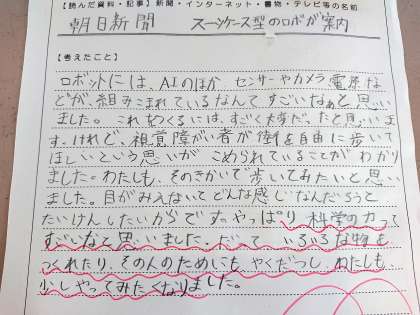 【読んだ資料・記事】新聞・インターネット・書物・テレビ等の名前
朝日新聞 スーツケース型のロボが案内
【考えたこと】
ロボットには、AIのほか センサーやカメラ電原な
どが、組みこまれているなんて すごいなぁと思い
ました。これをつくるには、すごく大変だ。たと思います
す。けれど、視覚障がい者が街を自由に歩いて
ほしいという思いが こめられていることが わかり
ました。わたしも、そのきかいで歩いてみたいと思い
ました。目がみえないってどんな感じなんだろうと
たいけんしたいからです。やっぱり 科学の力って
すごいなと思いました。だって いろいろな物を
つくれたり、その人のためにも やくだつし わたしも
少しやってみたくなりました。